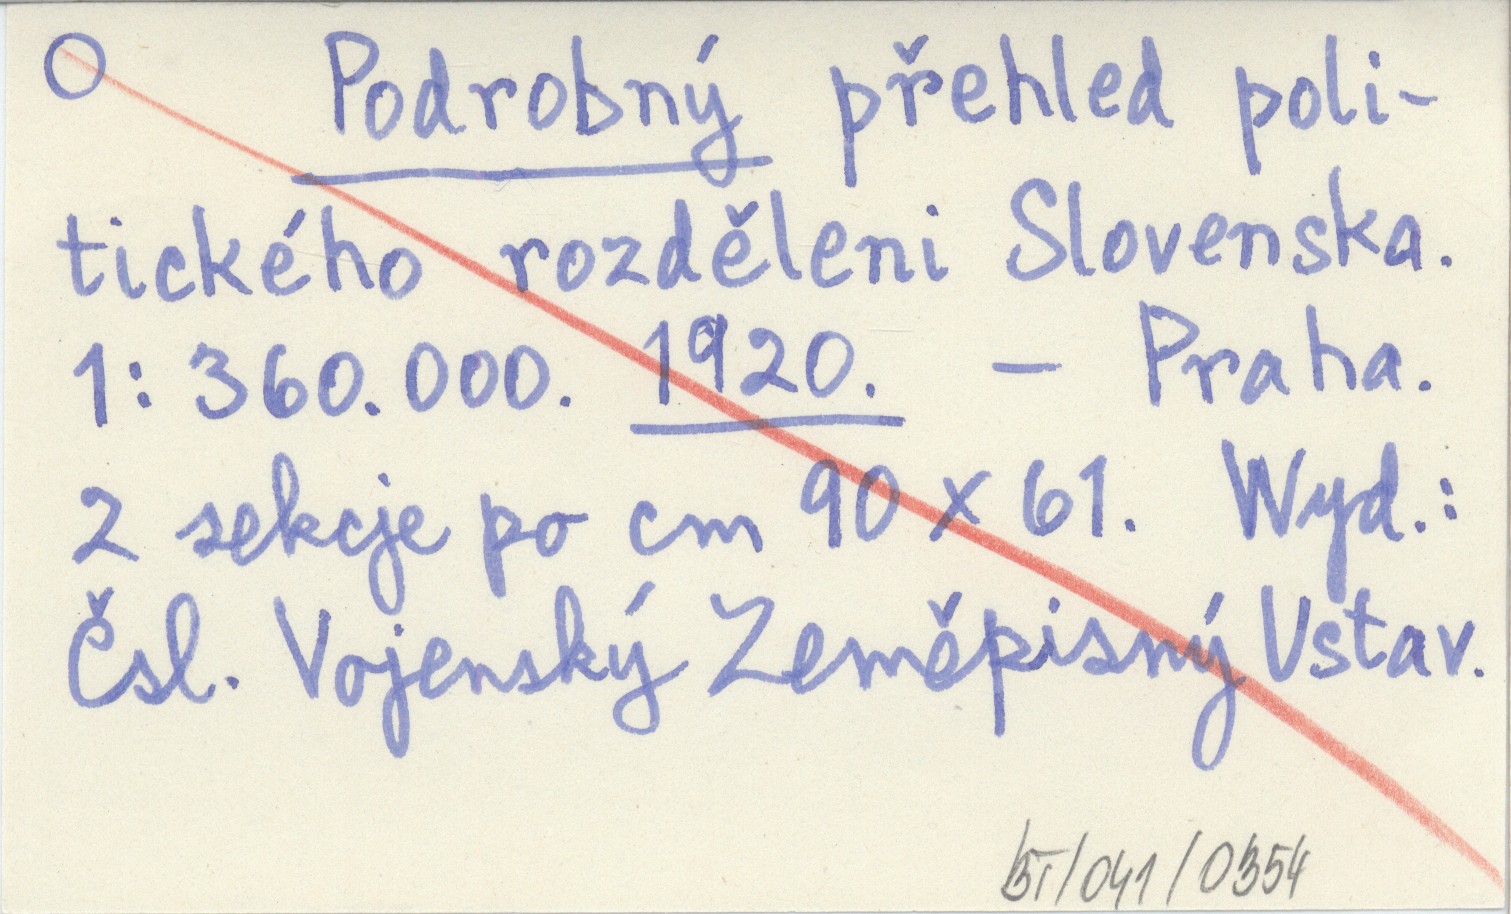 Podrobný přehled poli-
tického rozděleni Slovenska.
1:360.000. 1920. – Praha.
2 sekcje po cm 90 x 61. Wyd.:
Čsl. Vojenský Zeměpisný Ustav.
/041/0354